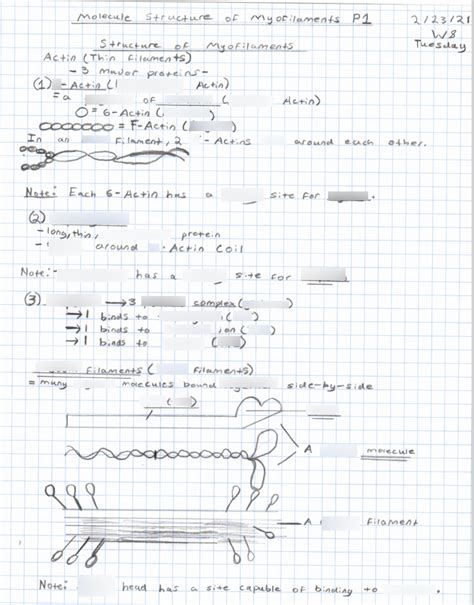 Molecule Structure of Myofilaments P1
2/23/21
W8
Tuesday
Structure of Myofilaments
Actin (Thin Filaments)
- 3 major proteins -
(1) - Actin ( Actin)
= a of ( Actin)
O = G-Actin ( )
= F-Actin ( )
In an Filament, 2 - Actins around each other.
Note: Each G-Actin has a site for .
(2)
- long, thin, protein
- around Actin Coil
Note: - has a site for
(3) → 3 complex ( )
→ 1 binds to ( )
→ 1 binds to ion ( )
→ 1 binds to ( )
Filaments ( Filaments)
= many molecules bound side-by-side
( )
A molecule
A Filament
Note: head has a site capable of binding to .